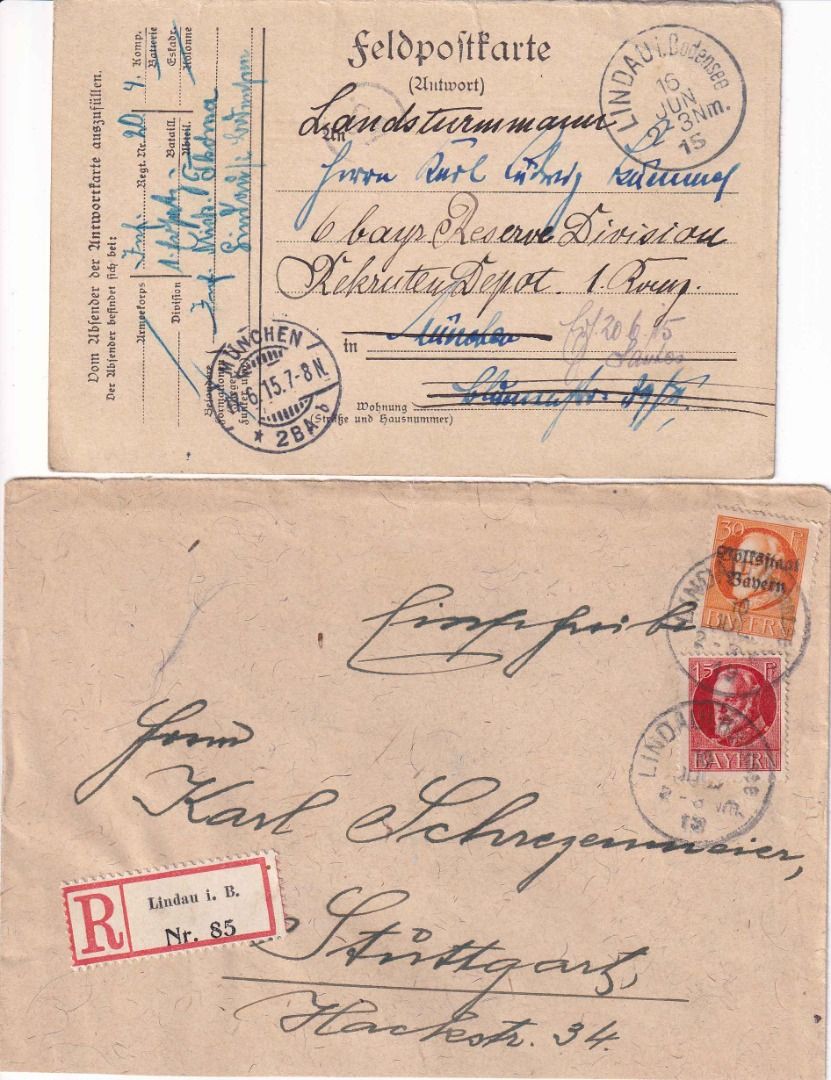 Feldpostkarte
(Antwort)
LINDAU i. Bodensee
16
JUN
2-3 Nm.
15
An Landsturmmann
Herrn Karl Ludwig
6 bayr. Reserve Division
Rekruten Depot. 1. Komp.
in München
20.6.15
Wohnung
(Straße und Hausnummer)
Vom Absender der Antwortkarte auszufüllen.
Der Absender befindet sich bei:
Armeekorps Inf. Regt. Nr. 20 4. Komp.
Batterie
Division Batail.
Abteil.
Eskadr.
Kolonne
MÜNCHEN
6.15.7-8N.
* 2BA
30 Pf
Volksstaat
Bayern
BAYERN
15 Pf
BAYERN
LINDAU
Einschreiben
Herrn
Karl Schregenmeier,
Stuttgart,
Hackstr. 34.
R
Lindau i. B.
Nr. 85